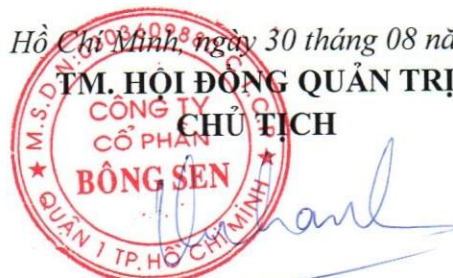 Hồ Chí Minh, ngày 30 tháng 08 nă
TM. HỘI ĐỒNG QUẢN TRỊ
CHỦ TỊCH
CÔNG TY
CỔ PHẦN
BÔNG SEN
QUẬN 1 TP. HỒ CHÍ MINH